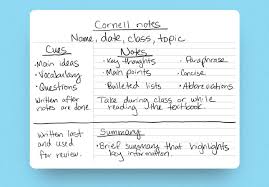 Cornell notes
Name, date, class, topic
Cues
• Main ideas
• Vocabulary
• Questions
Written after
notes are done.
Notes
• Key thoughts
• Main points
• Bulleted lists
• Paraphrase
• Concise
• Abbreviations
Take during class or while
reading the textbook.
Written last
and used
for review.
Summary
• Brief summary that highlights
key information.